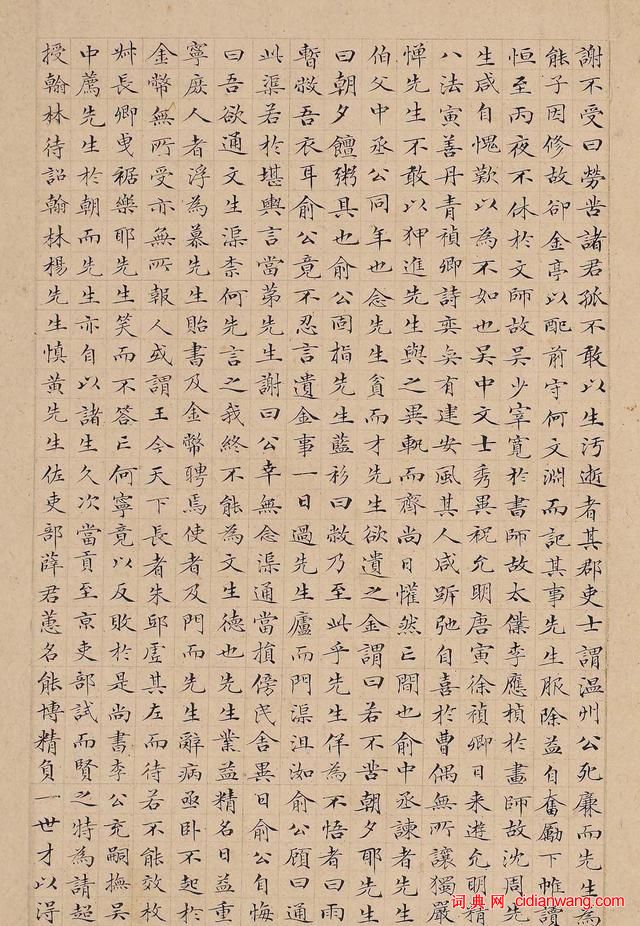 謝不受曰勞苦諸君孤不敢以生污逝者其郡吏士謂温州公死廉而先生為
能子因修故卻金亭以配前守何文淵而記其事先生服除益自奮勵下帷讀
恒至丙夜不休於文師故吳少宰寬於書師故太僕李應楨於畫師故沈周先
生咸自愧歎以為不如也吳中文士秀異祝允明唐寅徐禎卿日来遊允明精
八法寅善丹青禎卿詩奕奕有建安風其人咸跅弛自喜於曹偶無所讓獨嚴
憚先生不敢以狎進先生與之異軌而齊尚日懽然亡間也俞中丞諫者先生
伯父中丞公同年也念先生貧而才先生欲遺之金謂曰若不苦朝夕耶先生
曰朝夕饘粥具也俞公固指先生藍衫曰敝乃至此乎先生佯為不悟者曰雨
暫敝吾衣耳俞公竟不忍言遺金事一日過先生廬而門渠沮洳俞公顧曰通
此渠若於堪輿言當苐先生謝曰公幸無念渠通當損傍民舍異日俞公自悔
曰吾欲通文生渠柰何先言之我終不能為文生德也先生業益精名日益重
寧庶人者浮為慕先生貽書及金幣聘焉使者及門而先生辭病亟卧不起於
金幣無所受亦無所報人或謂王今天下長者朱邸虚其左而待若不能效枚
叔長卿曳裾樂耶先生笑而不答亡何寧竟以反敗於是尚書李公充嗣撫吳
中薦先生於朝而先生亦自以諸生久次當貢至京吏部試而賢之特為請超
授翰林待詔翰林楊先生慎黄先生佐吏部薛君蕙名能博精負一世才以得
词典网 cidianwang.com